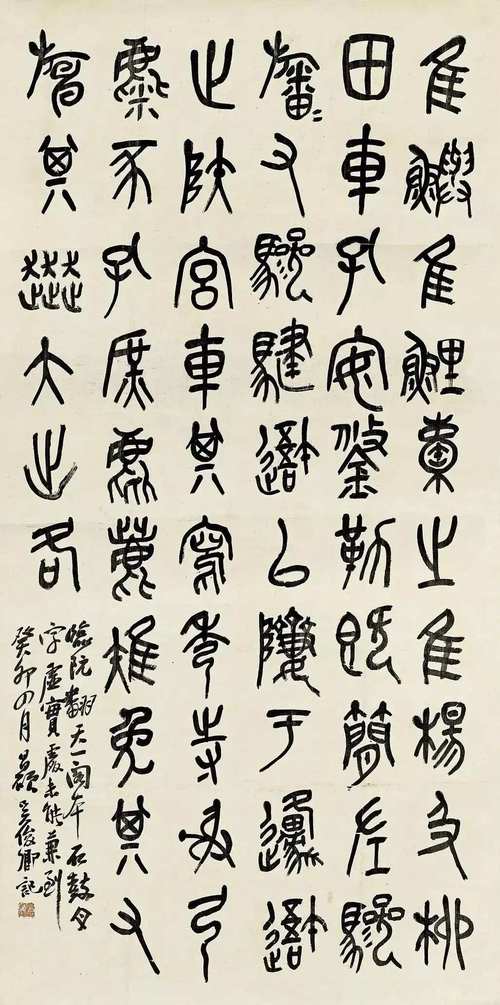 隹鱮隹鯉橐之隹楊及柳
田車孔安鋚勒既簡左驂
旛〻又驂騝吾以隮于邍吾
止陜宮車其寫秀寺射弓
麋豕孔庶麀鹿雉兔其又
旃其奔大出各
臨阮翻天一閣本石鼓文
字虛實處未能兼到
癸卯四月昌碩吳俊卿記